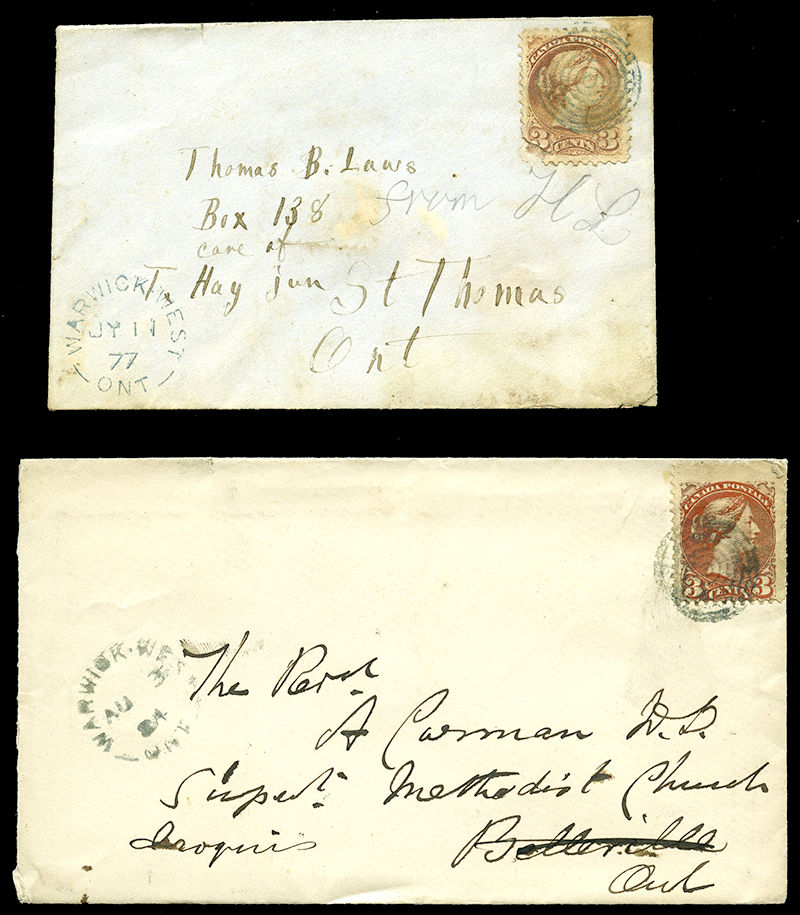 CANADA POSTAGE
3 CENTS 3
Thomas B. Laws
Box 138 from H L
care of
T. Hay jun St Thomas
Ont
WARWICK-WEST
JY 11
77
ONT
CANADA POSTAGE
3 CENTS 3
WARWICK-WEST
AU
84
ONT
The Revd
A Carman D.D.
Supert. Methodist Church
Iroquois Belleville
Ont